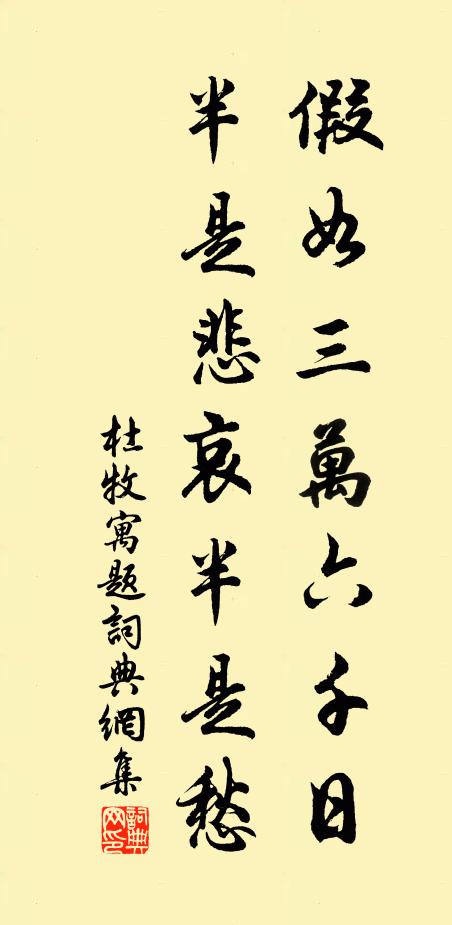 假如三萬六千日
半是悲哀半是愁
杜牧寓題詞典網集
詞典
网印